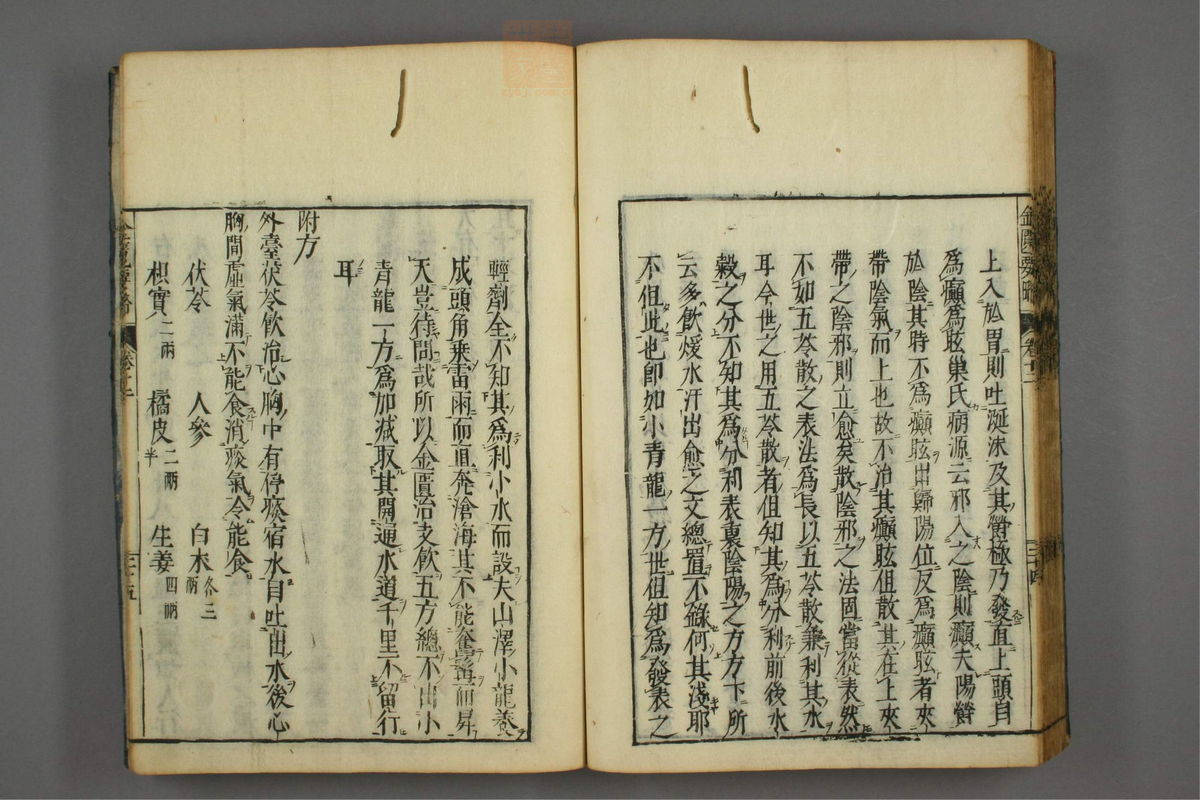 上入於胃則吐涎沫及其鬱極乃發直上頭目
為癲為眩巢氏病源云邪入之陰則癲夫陽鬱
於陰其時不為癲眩出歸陽位反為癲眩者夾
帶陰氣而上也故不治其癲眩但散其在上夾
帶之陰邪則立愈矣散陰邪之法固當從表然
不如五苓散之表法為長以五苓散兼利其水
耳今世之用五苓散者但知其為分利前後水
穀之分不知其為分利表裏陰陽之方方下所
云多飲煖水汗出愈之文總置不錄何其淺耶
不但此也即如小青龍一方世但知為發表之
金匱要略
卷十二
三十四
輕劑全不知其為利小水而設夫山澤小龍養
成頭角乘雷雨而直奔滄海其不能奮髯而昇
天豈待問哉所以金匱治支飲五方總不出小
青龍一方為加減取其開通水道千里不留行
耳
附方
外臺茯苓飲治心胸中有停痰宿水自吐出水後心
胸間虛氣滿不能食消痰氣令能食
茯苓 人參 白朮各三兩
枳實二兩 橘皮二兩半 生姜四兩
金匱要略
卷十二
三十五